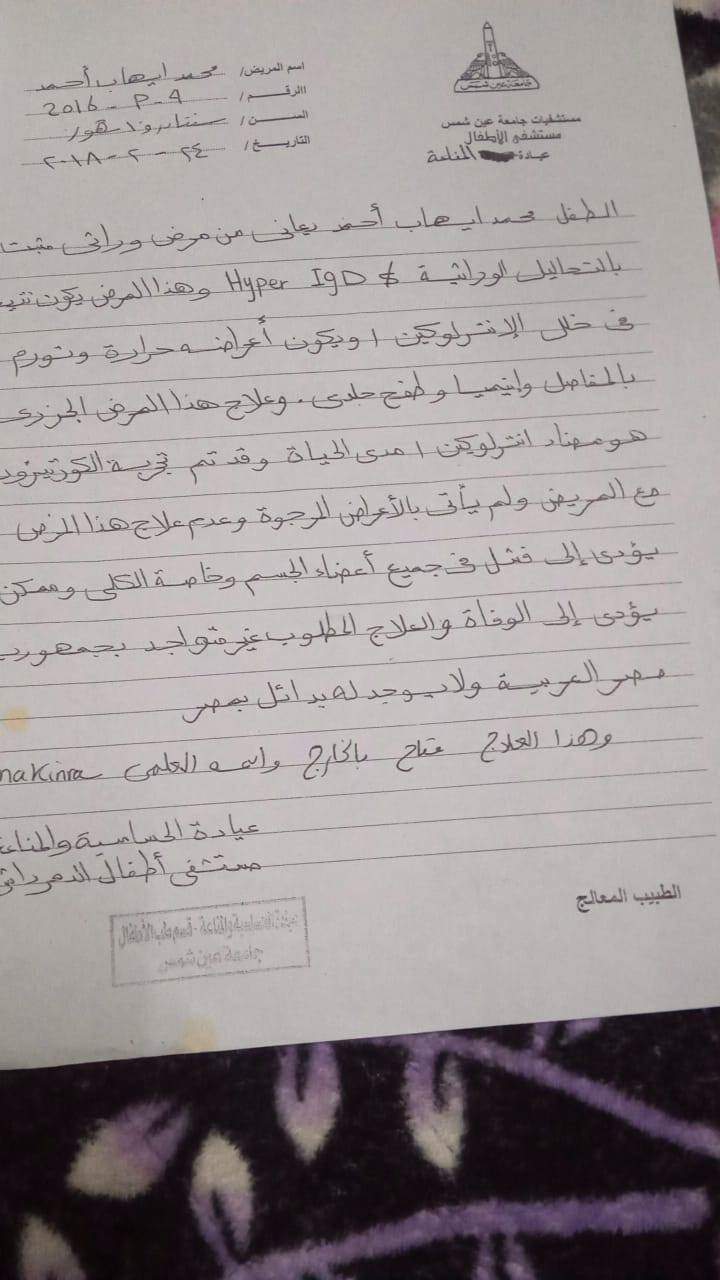 جامعة عين شمس
مستشفيات جامعة عين شمس
مستشفى الأطفال
عيادة المناعة
اسم المريض/ محمد ايهاب أحمد
الرقم/ 2016 - P - 4
السن/ سنتان و ٦ شهور
التاريخ/ ٢٤ - ٢ - ٢٠١٨
الطفل محمد ايهاب أحمد يعانى من مرض وراثى مثبت
بالتحاليل الوراثية Hyper IgD وهذا المرض يكون
فى خلل الإنترلوكين ١ ويكون أعراضه حرارة وتورم
بالمفاصل وانيميا وطفح جلدى . وعلاج هذا المرض الجزرى
هو مضاد انترلوكين ١ مدى الحياة وقد تم تجربة
مع المريض ولم يأتى بالأعراض المرجوة وعدم علاج هذا المرض
يؤدى إلى فشل فى جميع أعضاء الجسم وخاصة الكلى وممكن
يؤدى إلى الوفاة والعلاج المطلوب غير متواجد
مصر العربية ولا يوجد له بدائل بمصر
وهذا العلاج متاح بالخارج واسمه العلمى nakinra
عيادة الحساسية
مستشفى أطفال
الطبيب المعالج
جامعة عين شمس